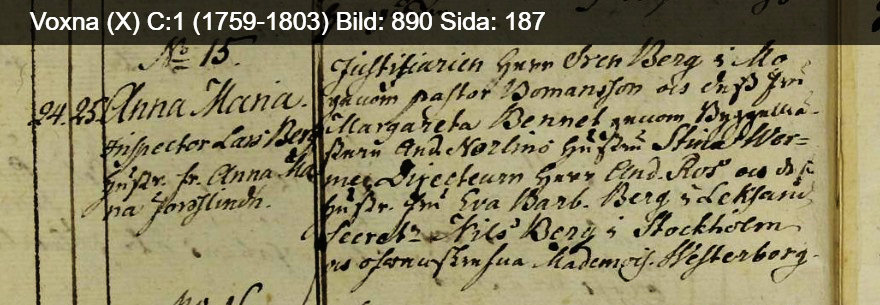 Voxna (X) C:1 (1759-1803) Bild: 890 Sida: 187
No 15.
24. 25. Anna Maria.
Inspector Lars Berg
hustr. fr. Anna Ma
ria
Justitiarien Herr Sven Berg i Mo
genom pastor Bomansson och dess fru
Margareta Bennet genom Byggmä-
staren And. Norlins hustru Stina Wer-
me, Directeurn Herr And. Ros och dess
hustr. fru Eva Barb. Berg i Leksand
Secret. Nils Berg i Stockholm
och Mademois. Westerborg.